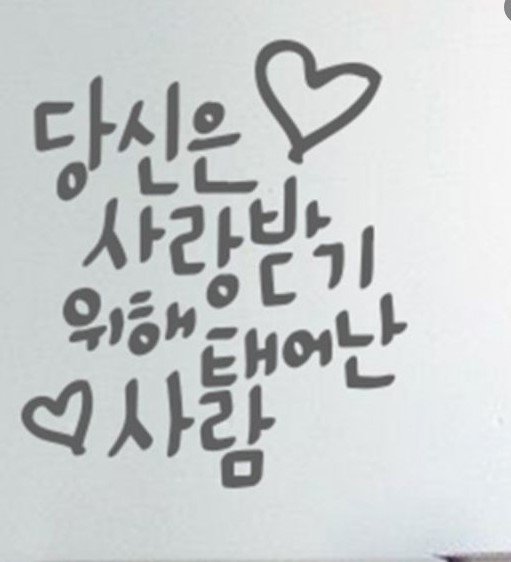 당신은
사랑받기
위해 태어난
사람